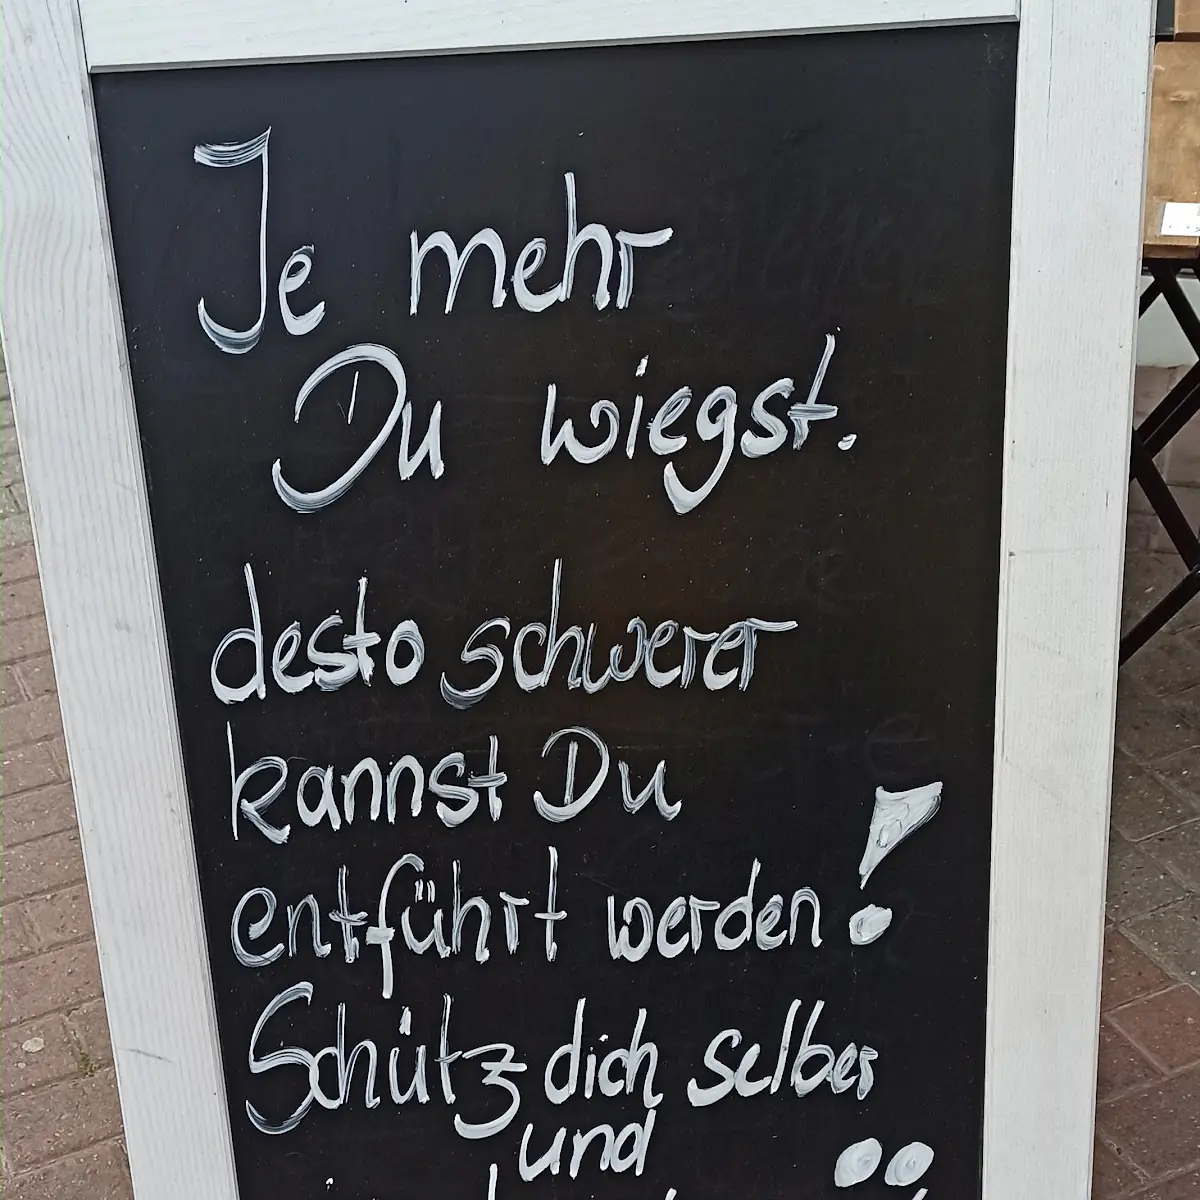 Je mehr
Du wiegst.
desto schwerer
kannst Du
entführt werden!
Schütz dich selber
und